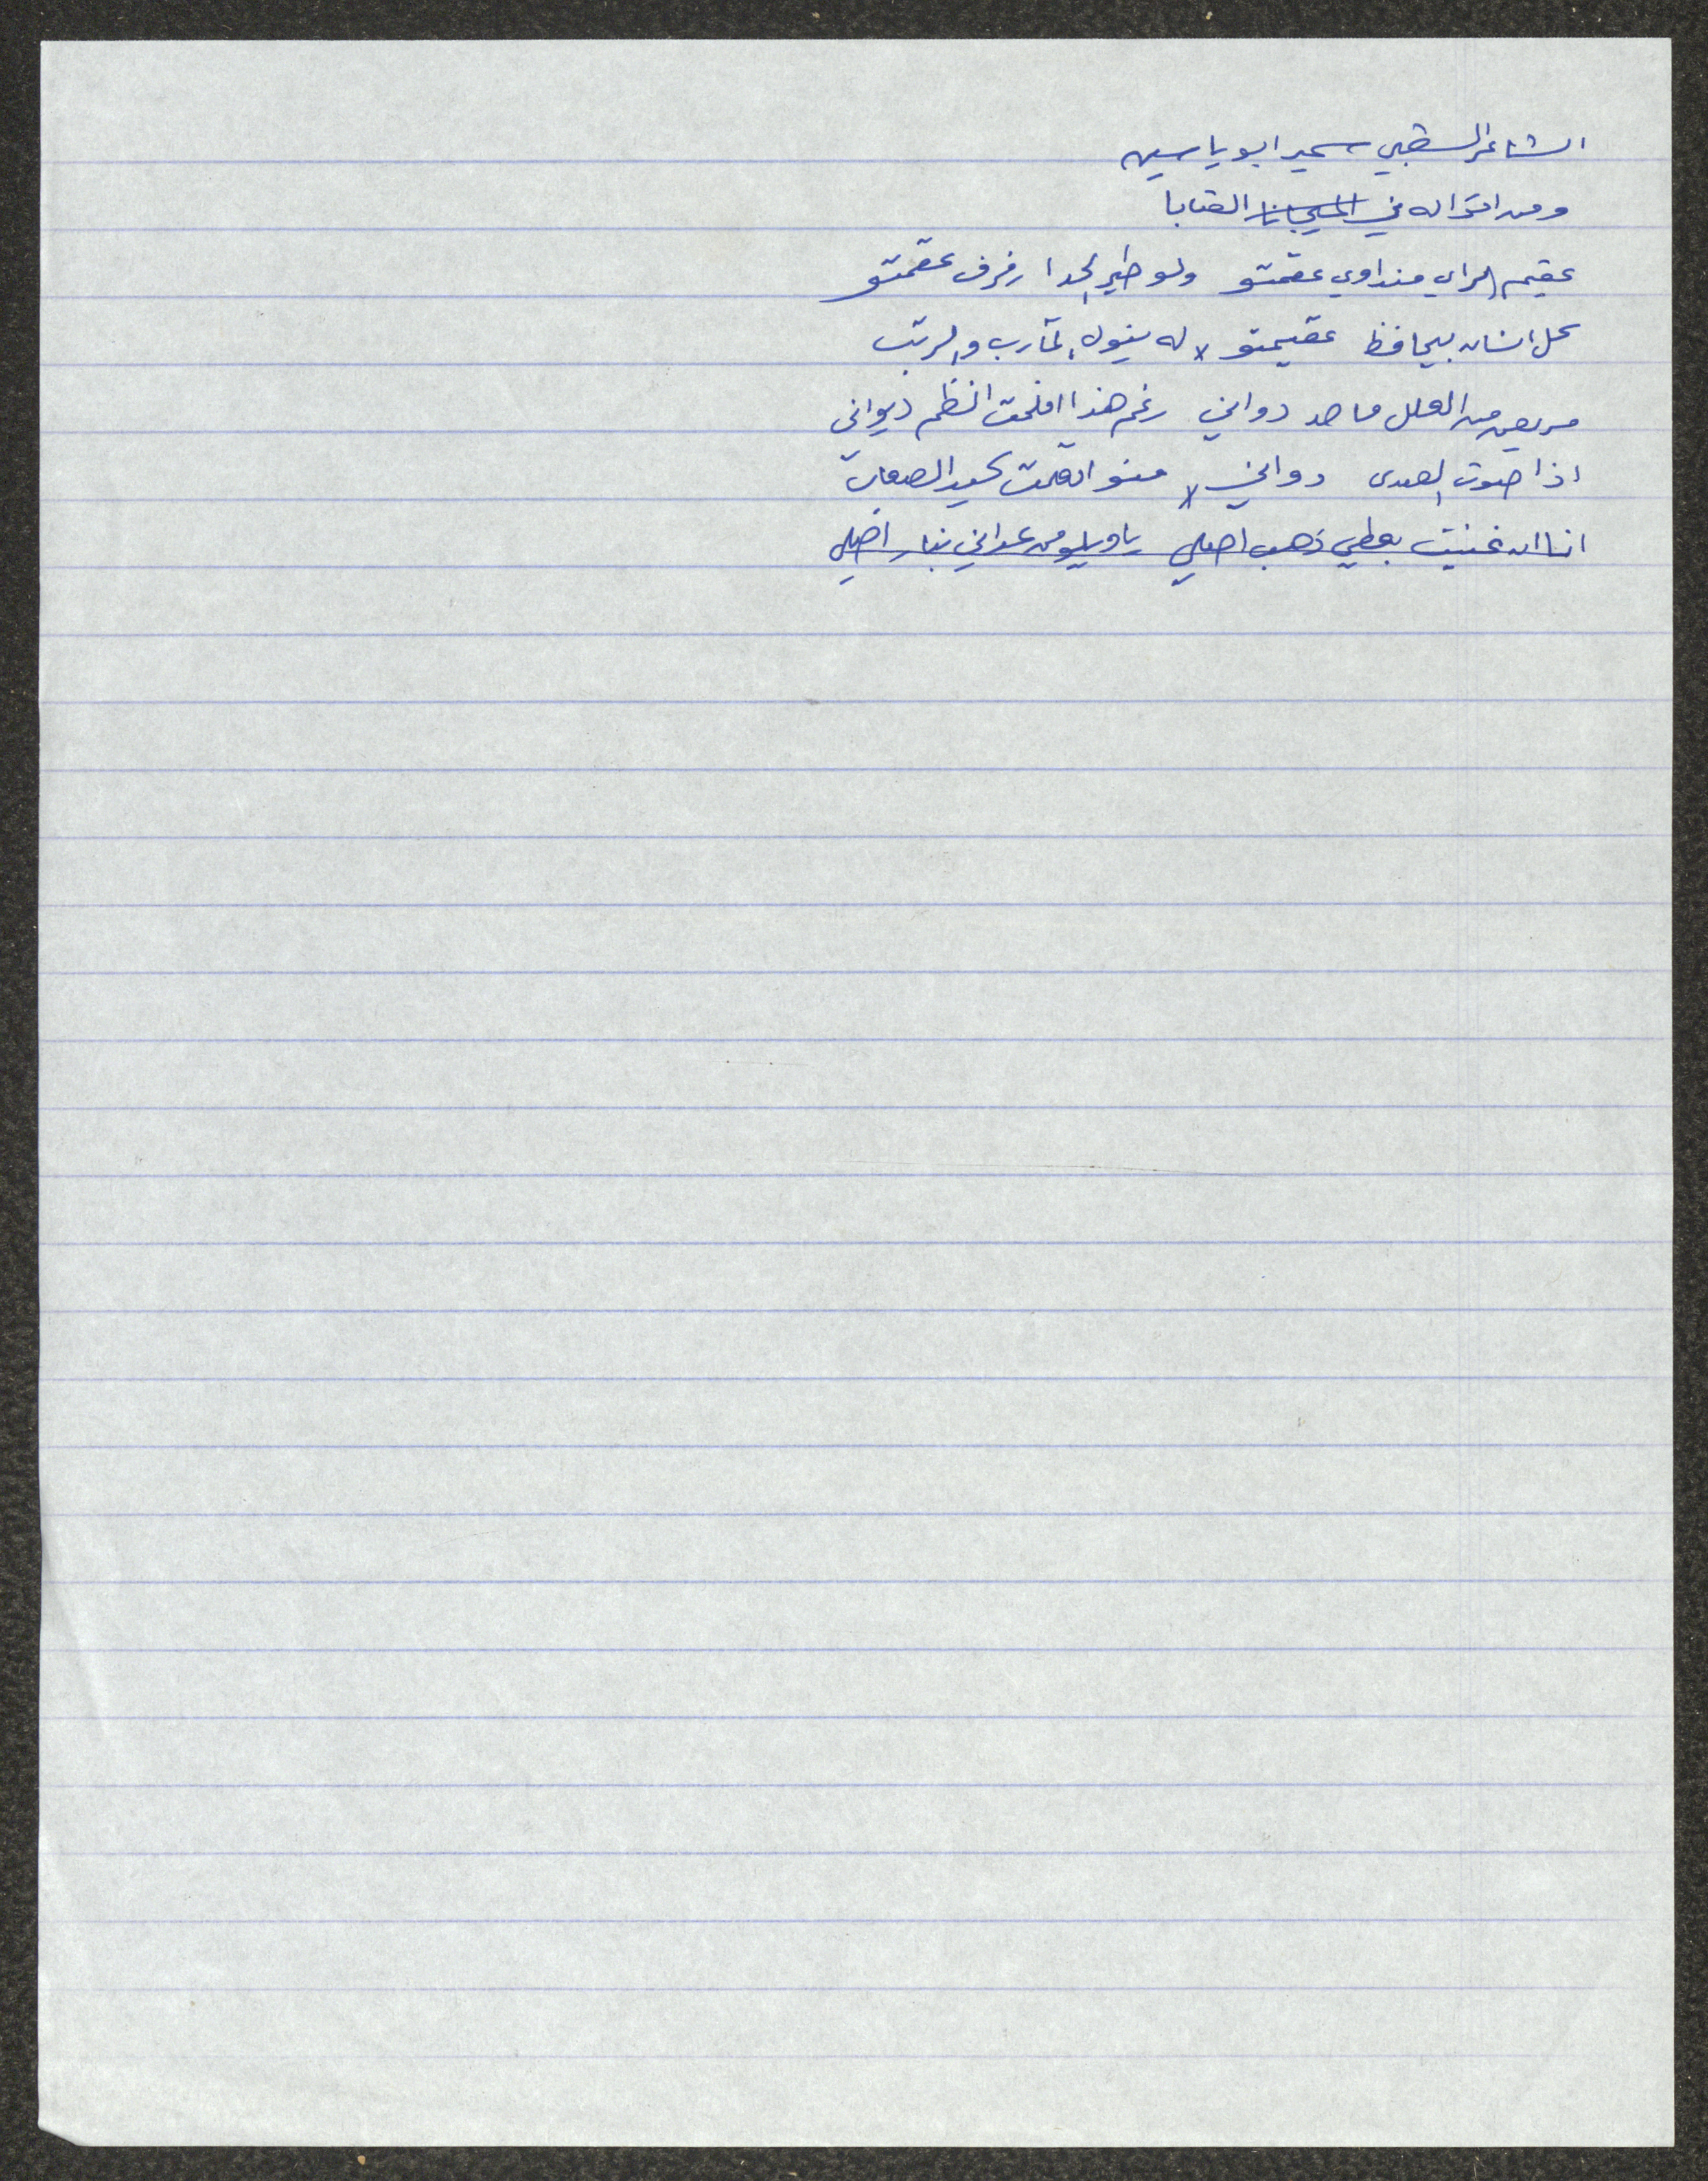 الشاعر الشعبي سمير ابو ياسين
ومن اقواله في الميجانا العتابا
عقيم الراي منداوي عقمتو ولو طير الحدا رفرف عقمتو
كل انسان بيحافظ عقيمتو x له ينول المآرب والرتب
مريض من العلل ما حد دواني رغم هذا افلحت انظم ديواني
اذا صوت الصدى دواني x منو انقلت كيد الصعاب
انا ان غنيت بعطي ذهب اصلي يا ويلو من عداني بنار اصلي